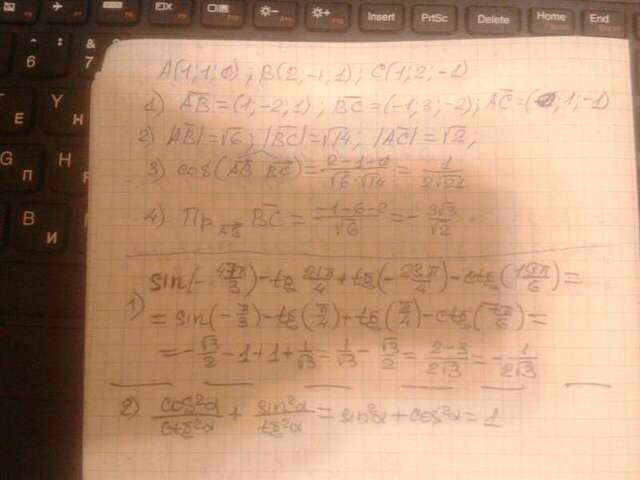 Insert PrtSc Delete Home End
F9 F10 F11 F12
6 & 7
Y H
Е Н
G П
В И
A(1;1;0); B(2;-1;1); C(1;2;-1)
1) AB=(1,-2,1); BC=(-1;3;-2); AC=(0;1;-1)
2) |AB|=√6; |BC|=√14; |AC|=√2;
3) cos(AB BC)=(2-1+0)/(√6·√14)=1/(2√21)
4) Пр_AB BC=(-1-6-2)/√6=-3√3/√2
sin(-47π/3)-tg 21π/4+tg(-23π/4)-ctg(19π/6)=
1) =sin(-π/3)-tg(π/4)+tg(π/4)-ctg(7π/6)=
=-√3/2-1+1+1/√3=1/√3-√3/2=(2-3)/(2√3)=-1/(2√3)
2) cos²α/ctg²α+sin²α/tg²α=sin²α+cos²α=1